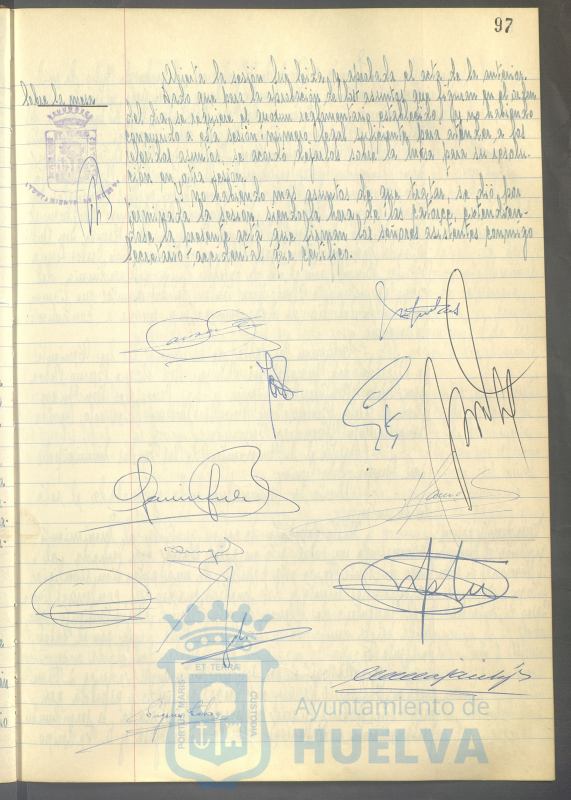 97
Sobre la mesa.
Abierta la sesión fué leída y aprobada el acta de la anterior.
Dado que para la aprobación de los asuntos que figuran en el orden
del día, se requiere el quorum reglamentario establecido, y no habiendo
concurrido a esta sesión número legal suficiente para atender a los
referidos asuntos, se acordó dejarlos sobre la mesa para su resolu-
ción en otra sesión.
Y no habiendo mas asuntos de que tratar, se dió por
terminada la sesión, siendo la hora de las catorce, extendién-
dose la presente acta que firman los señores asistentes conmigo
Secretario-accidental que certifico.
PORTUS MARIS
ET TERRÆ
CUSTODIA
Ayuntamiento de
HUELVA